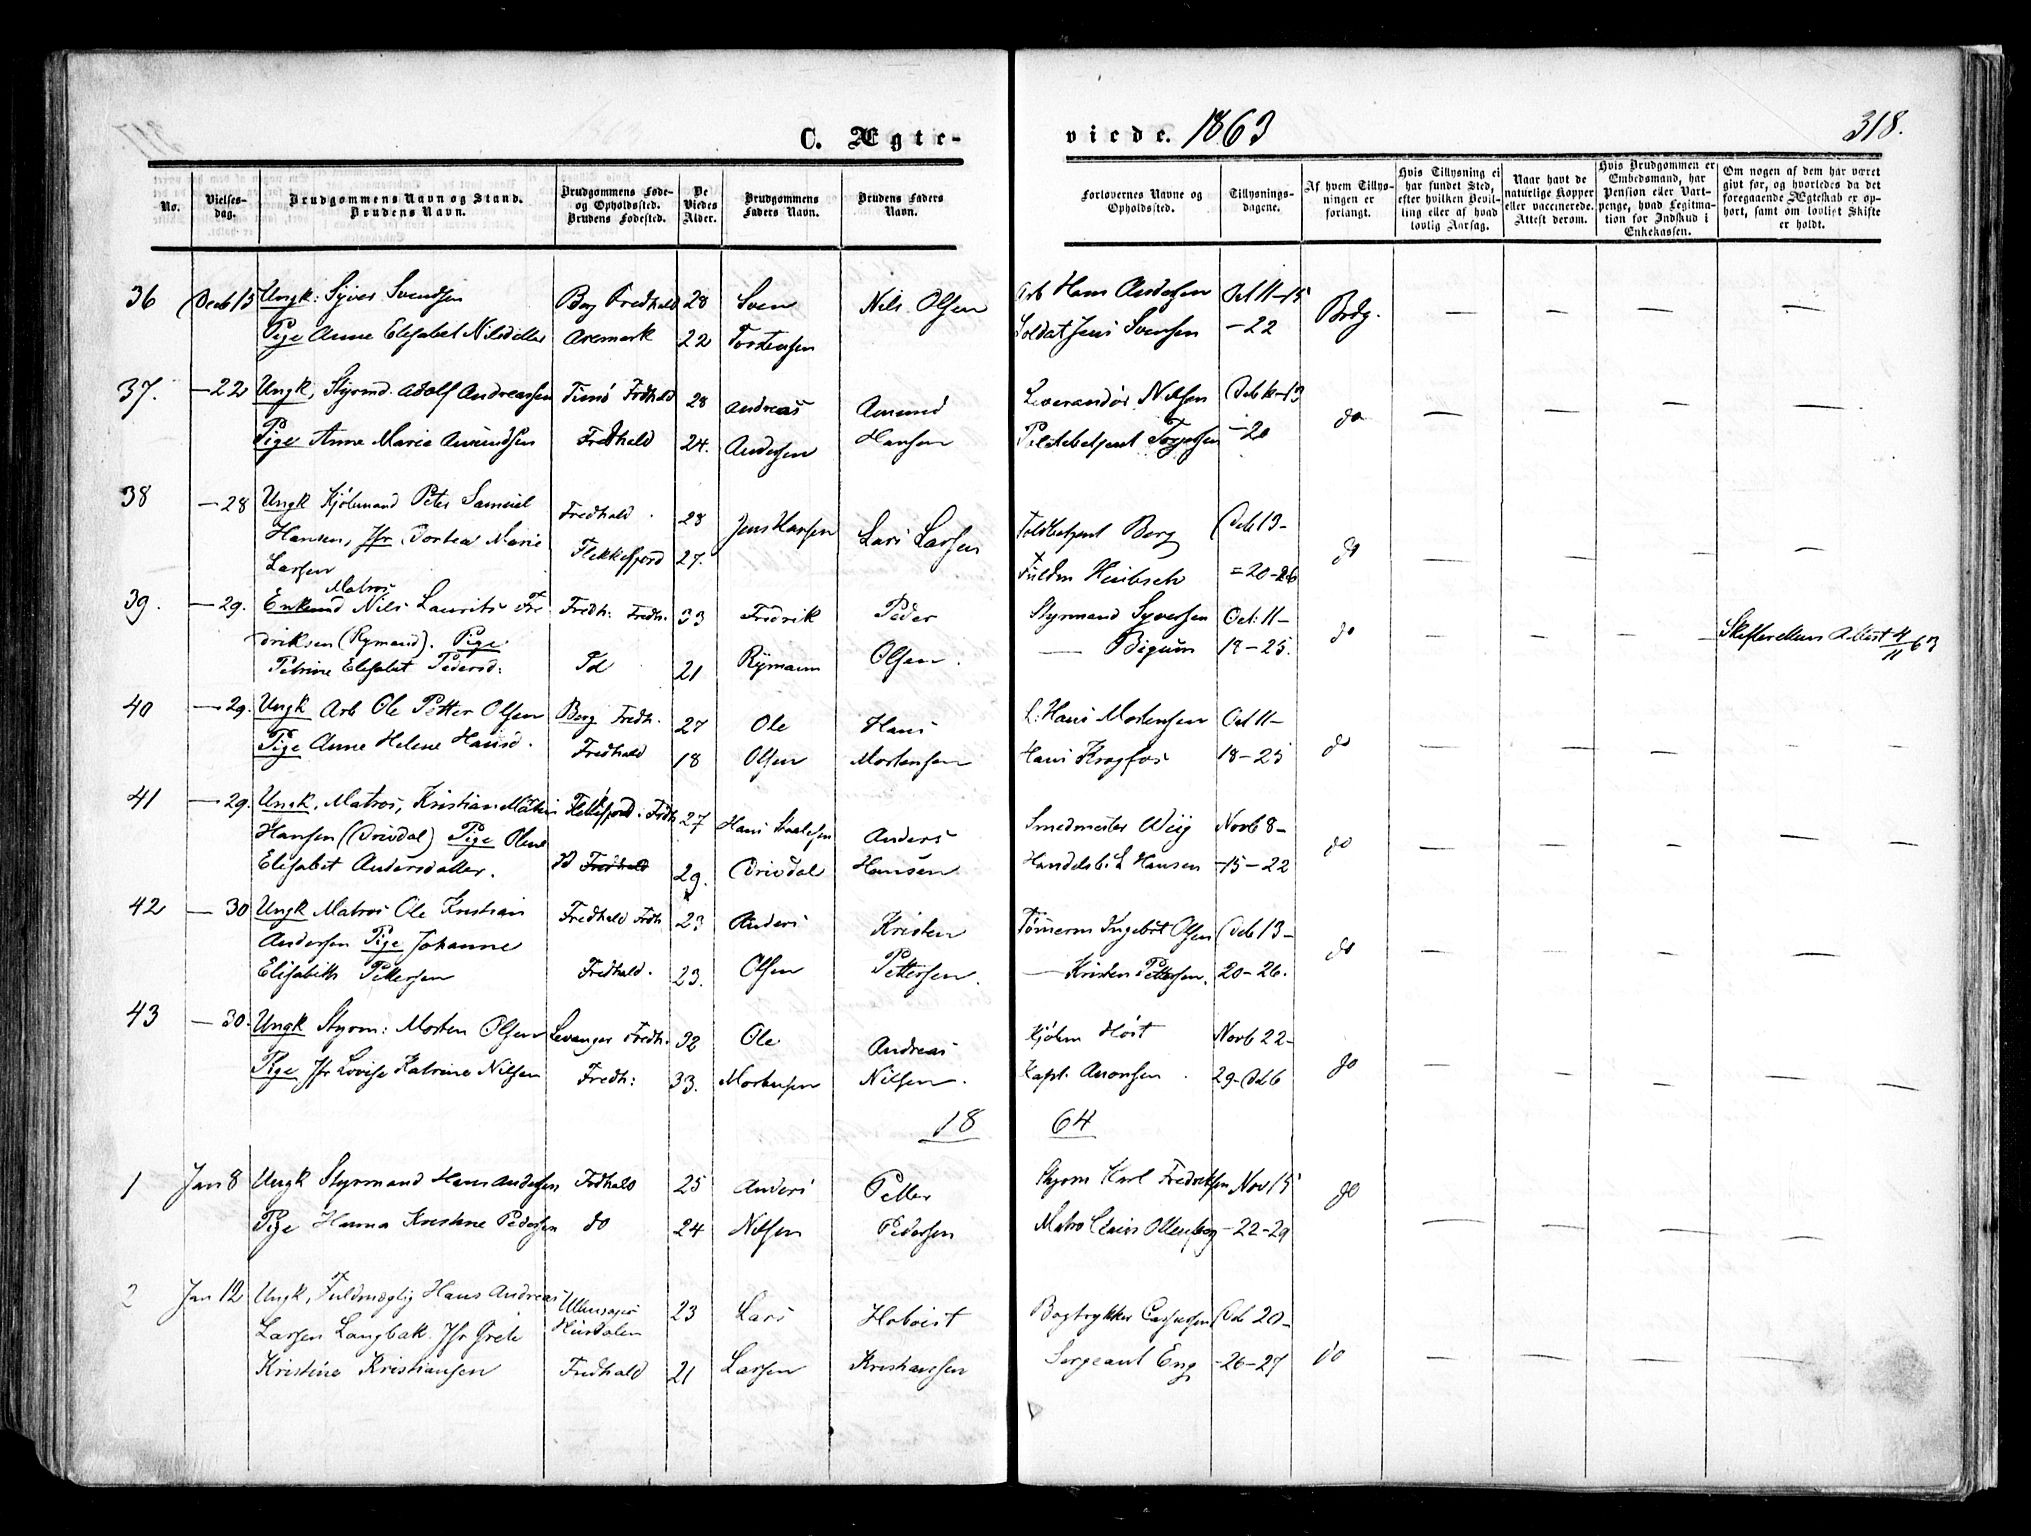 C. Ægte-
viede. 1863
318.
No.
Vielses-
dag.
Brudgommens Navn og Stand.
Brudens Navn.
Brudgommens Føde-
og Opholdssted.
Brudens Fødested.
De
Viedes
Alder.
Brudgommens
Faders Navn.
Brudens Faders
Navn.
Forlovernes Navne og
Opholdssted.
Tillysnings-
dagene.
Af hvem Tillys-
ningen er
forlangt.
Hvis Tillysning ei
har fundet Sted,
efter hvilken Bevil-
ling eller af hvad
lovlig Aarsag.
Naar havt de
naturlige Kopper
eller vaccinerede.
Attest derom.
Hvis Brudgommen er
Embedsmand, har
Pension eller Vart-
penge, hvad Legitma-
tion for Indskud i
Enkekassen.
Om nogen af dem har været
givt før, og hvorledes da det
foregaaende Ægteskab er op-
hørt, samt om lovligt Skifte
er holdt.
36 Decb 15 Ungk: Syver Svendsen Berg Fredhald 28 Sven Nils Olsen Arb Hans Andersen Oct 11-15 Brdg. — — — —
Pige Anne Elisabet Nilsdatter Aremark 22 Torstensen Soldat Jens Svensen -22
37. -22 Ungk, Styrmd. Adolf Andreassen Fredhald 28 Andreas Amund Leverandør Nilsen -13 do — — — —
Pige Anne Marie Amundsen Fredhald 24. Andersen Hansen Torgersen -20
38 -28 Ungk Kjøbmand Peter Samuel Fredhald 28 Jens Hansen Lars Larsen Toldbetjent Borg Decb 13- do — — — —
Hansen, Jfr. Dortea Marie Flekkefjord 27. =20-26
Larsen
39. -29. Enkemd Matros Nils Laurits Fre- Fredh: Fredh. 33 Fredrik Peder Styrmand Syversen Oct: 11- do — — — Skifterettens Attest 4/11 63
driksen (Rymand). Pige — Bigum 19-25.
Petrine Elisabet Pedersd: Td 21 Rymann Olsen.
40 -29. Ungk Arb Ole Petter Olsen Berg Fredh. 27 Ole Hans L: Hans Mortensen Oct 11- do — — — — —
Pige Anne Helene Hansd. Fredhald 18 Olsen Mortensen Hans Kragfos 18-25
41 -29. Ungk. Matros, Kristian Flekkefjord. Frdh 27 Hans Anders Smedmester Wiig Novb 8- do — — — — —
Hansen (Drivdal) Pige Olene
Elisabet Andersdatter. Fredhald 29. Drivdal Hansen Handelsb. L Hansen -15-22
42 -30 Ungk Matros Ole Kristian Fredhald Frdh 23 Anders Kristen Tømerm Ingebrt Olsen Decb 13- do — — — — —
Andersen Pige Johanne
Elisabeth Pettersen Fredhald. 23. Olsen Pettersen. — Kristen Pettersen. 20-26.
43 -30. Ungk Styrm: Morten Olsen Levanger Fredh. 32 Ole Andreas Kjøbm Høst Novb 22- do — — — — —
Pige Jfr Lovise Katrine Nilsen Fredh: 33. Mortensen Nilsen. Kapt. Aronsen. 29-Dcb 6
18 64
1 Jan 8 Ungk Styrmand Hans Andersen Frdhald 25 Anders Petter Styrm Karl Fredriksen Nov 15 do — — — —
Pige Hanna Kristine Pedersen do 24 Nilsen Pedersen Matro -22-29
2 Jan 12 Ungk, Fuldmægtig Hans Andreas Ullensager 23 Lars Halvist Bogtrykker Decb 20- do — — — —
Larsen Langbak. Jfr Grete Hurdalen
Kristine Kristiansen Fredhald 21 Larsen Kristiansen Sergeant Eng -26-27